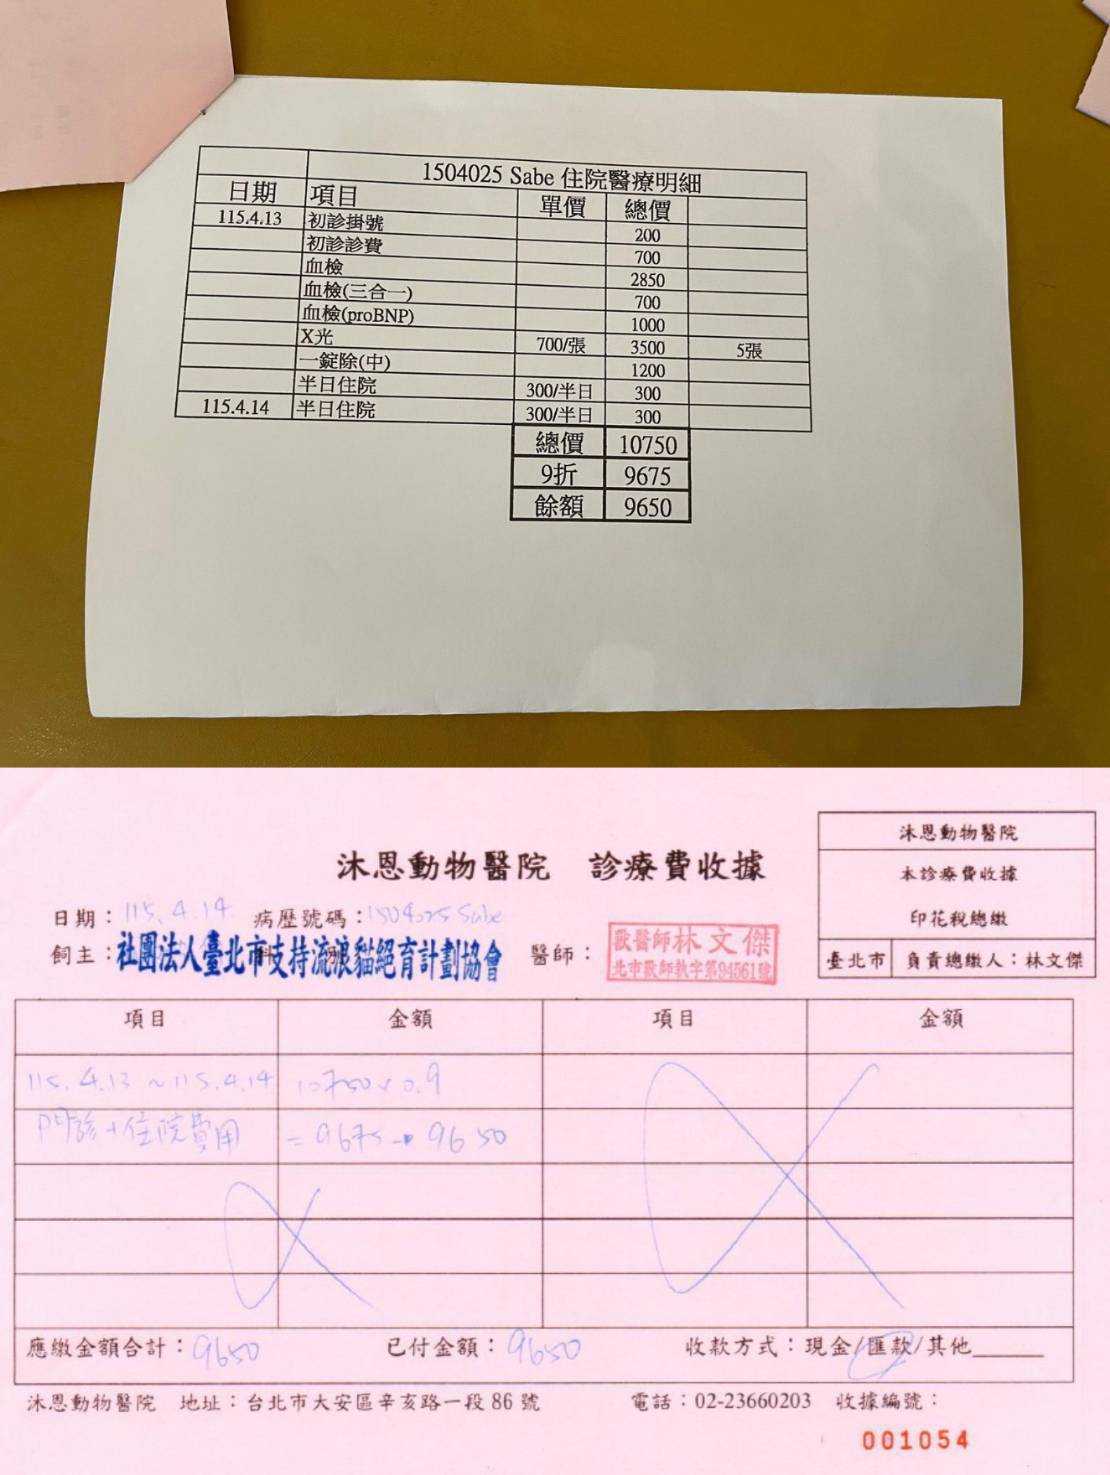 1504025 Sabe 住院醫療明細
日期 項目 單價 總價
115.4.13 初診掛號 200
初診診費 700
血檢 2850
血檢(三合一) 700
血檢(proBNP) 1000
X光 700/張 3500 5張
一錠除(中) 1200
半日住院 300/半日 300
115.4.14 半日住院 300/半日 300
總價 10750
9折 9675
餘額 9650
沐恩動物醫院
本診療費收據
印花稅總繳
臺北市 負責總繳人：林文傑
沐恩動物醫院 診療費收據
日期：115.4.14. 病歷號碼：1504025 Sabe
飼主：社團法人臺北市支持流浪貓絕育計劃協會 醫師：獸醫師林文傑
北市獸師執字第94561號
項目 金額 項目 金額
115.4.13～115.4.14 10750×0.9
門診+住院費用 =9675→9650
應繳金額合計：9650 已付金額：9650 收款方式：現金/匯款/其他______
沐恩動物醫院 地址：台北市大安區辛亥路一段86號 電話：02-23660203 收據編號：
001054